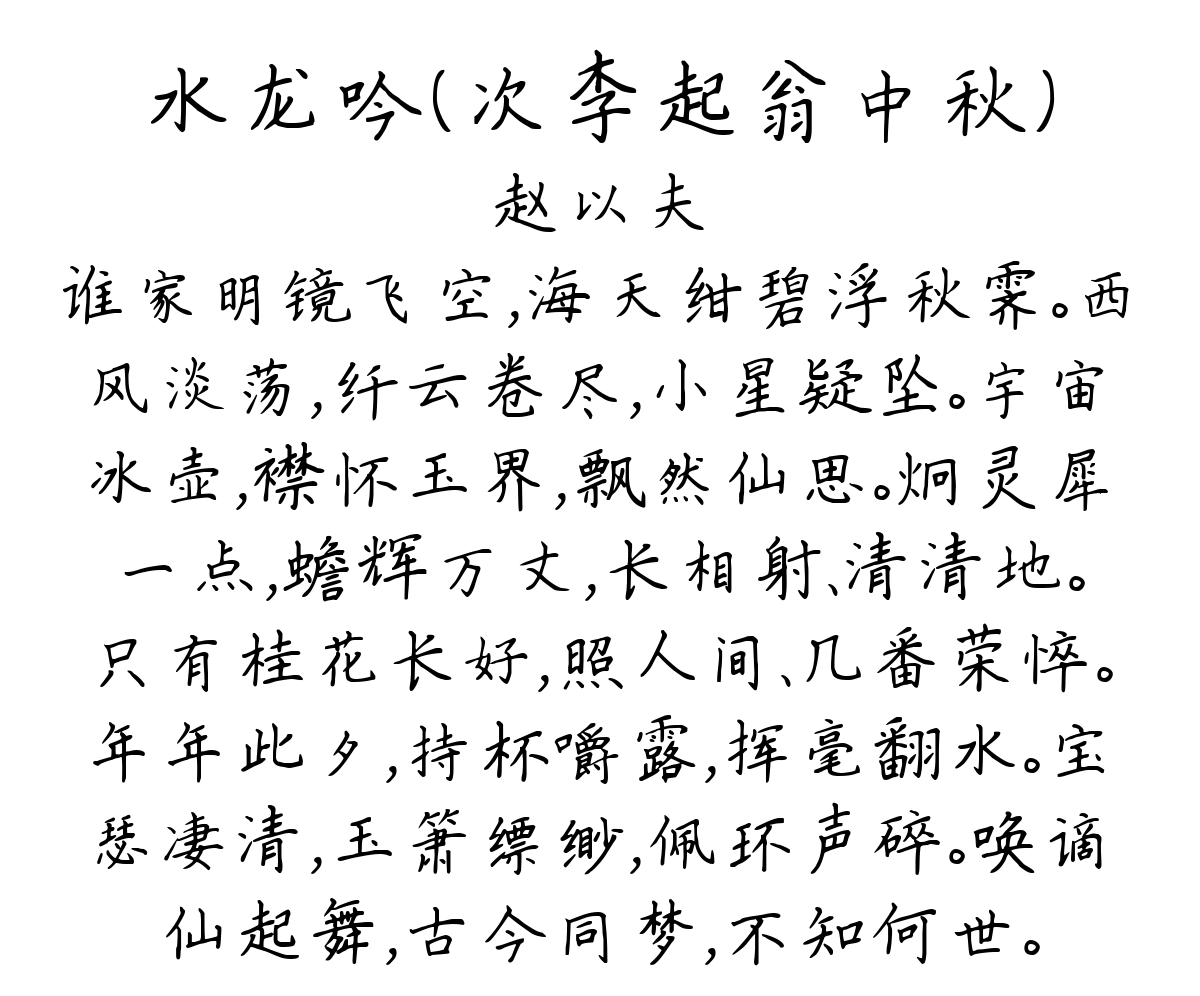 水龙吟(次李起翁中秋)
赵以夫
谁家明镜飞空,海天绀碧浮秋霁。西
风淡荡,纤云卷尽,小星疑坠。宇宙
冰壶,襟怀玉界,飘然仙思。炯灵犀
一点,蟾辉万丈,长相射、清清地。
只有桂花长好,照人间、几番荣悴。
年年此夕,持杯嚼露,挥毫翻水。宝
瑟凄清,玉箫缥缈,佩环声碎。唤谪
仙起舞,古今同梦,不知何世。